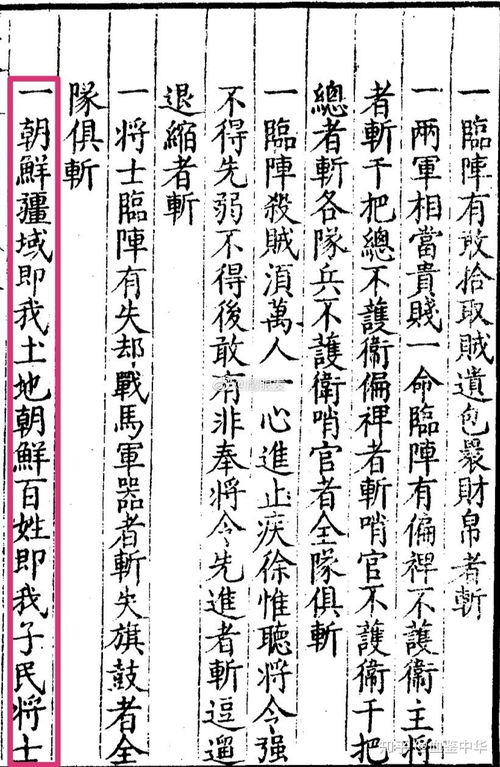 一臨陣有敢拾取賊遺包裹財帛者斬
一兩軍相當貴賤一命臨陣有偏裨不護衞主將
者斬千把總不護衞偏裨者斬哨官不護衞千把
總者斬各隊兵不護衛哨官者全隊俱斬
一臨陣殺賊湏萬人一心進止疾徐惟聽將令强
不得先弱不得後敢有非奉將令先進者斬逗遛
退縮者斬
一將士臨陣有失却戰馬軍器者斬失旗鼓者全
隊俱斬
一朝鮮疆域即我土地朝鮮百姓即我子民將士